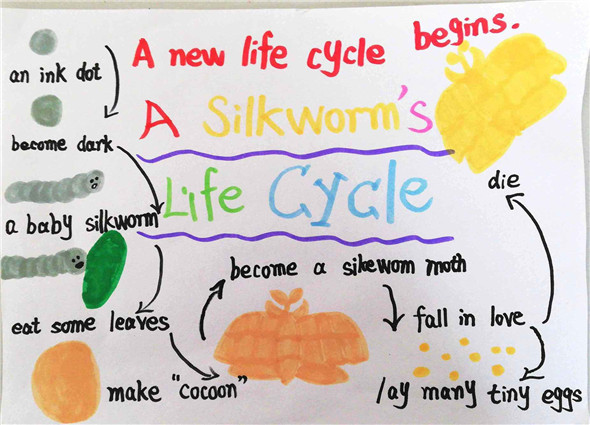 A new life cycle begins.
an ink dot
A Silkworm's
become dark
Life Cycle
a baby silkworm
die
become a sikewom moth
eat some leaves
fall in love
make "cocoon"
lay many tiny eggs